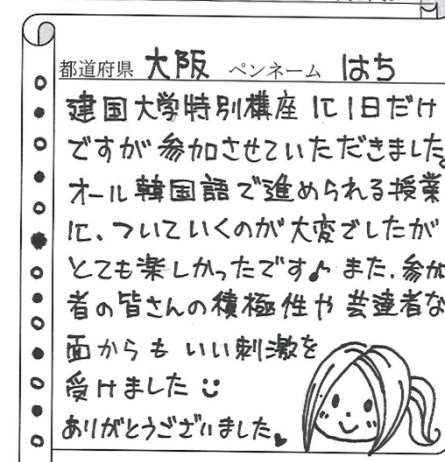 都道府県 大阪 ペンネーム はち
建国大学特別講座に1日だけ
ですが参加させていただきました。
オール韓国語で進められる授業
に、ついていくのが大変でしたが
とても楽しかったです♪ また、参加
者の皆さんの積極性や芸達者な
面からも いい刺激を
受けました
ありがとうございました。